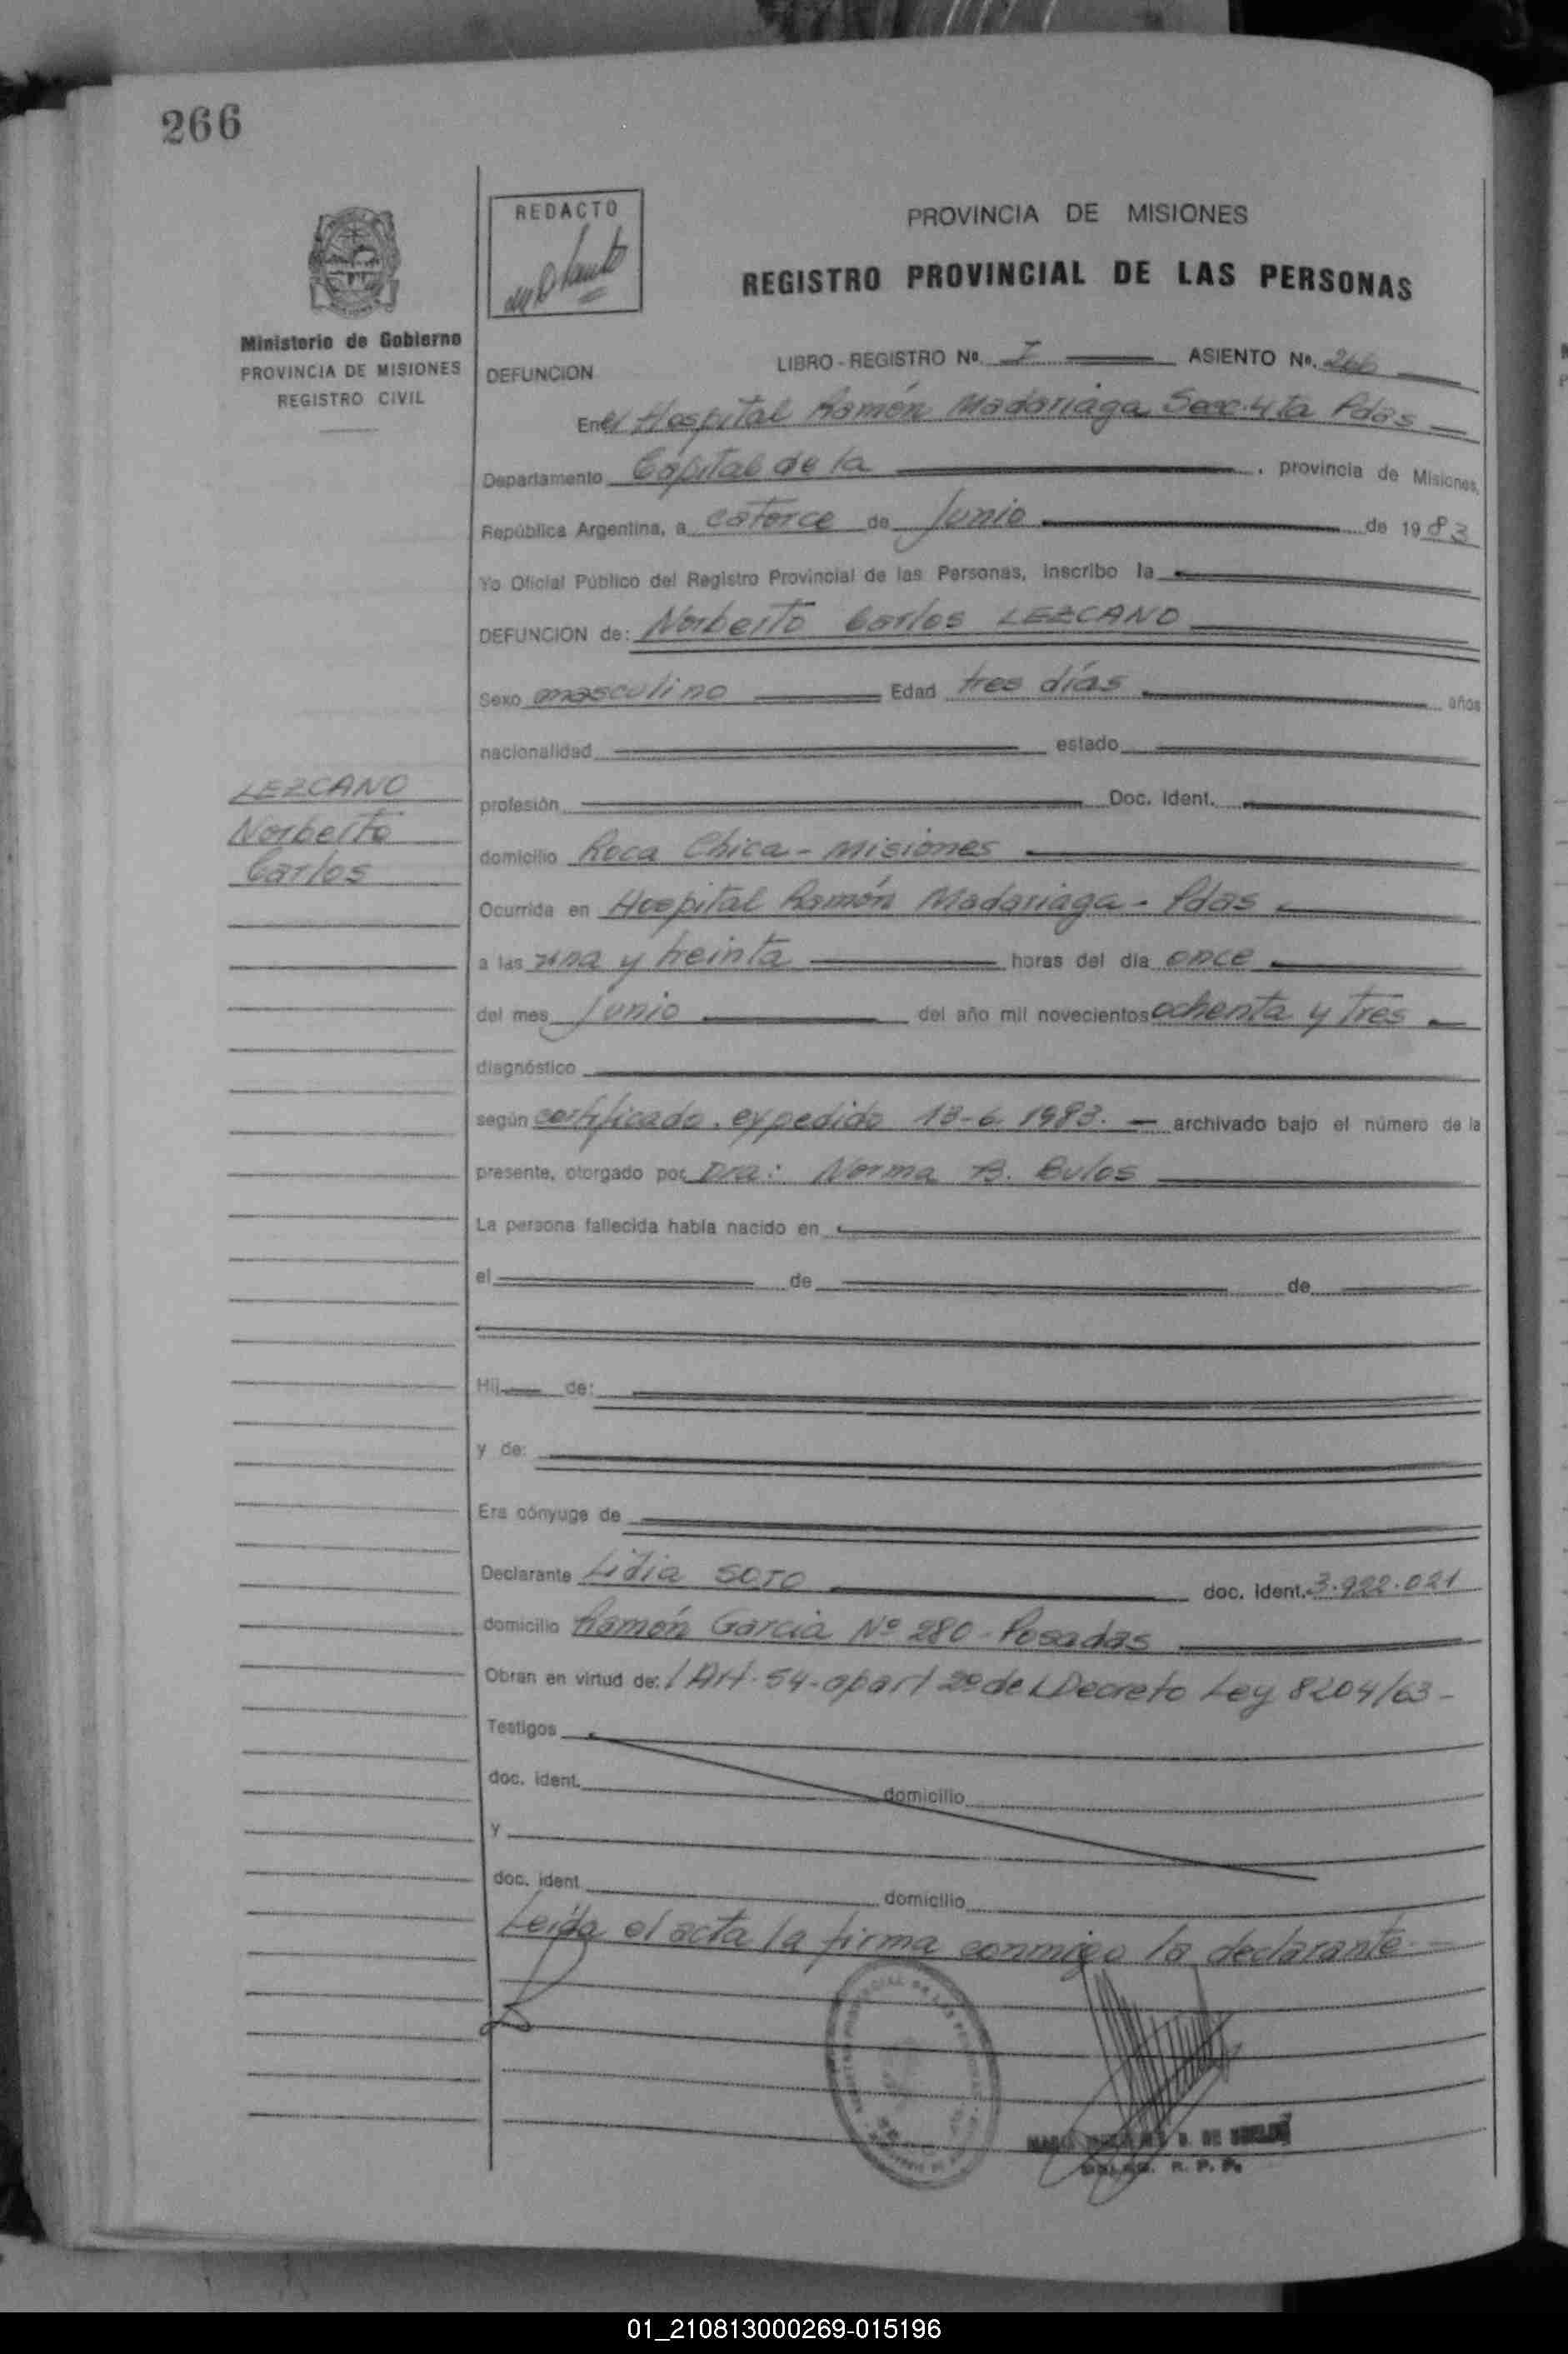 266
REDACTO
PROVINCIA DE MISIONES
REGISTRO PROVINCIAL DE LAS PERSONAS
Ministerio de Gobierno
PROVINCIA DE MISIONES
REGISTRO CIVIL
DEFUNCION
LIBRO - REGISTRO No. I ASIENTO No. 266
En el Hospital Ramón Madariaga Secc. 4ta Pdas
Departamento Capital de la, provincia de Misiones,
República Argentina, a catorce de Junio de 1983
Yo Oficial Público del Registro Provincial de las Personas, inscribo la
DEFUNCION de: Norberto Carlos LEZCANO
Sexo masculino Edad tres días años
nacionalidad estado
LEZCANO
Norberto
Carlos
profesión Doc. Ident.
domicilio Roca Chica - Misiones
Ocurrida en Hospital Ramón Madariaga - Pdas
a las una y treinta horas del día once
del mes Junio del año mil novecientos ochenta y tres
diagnóstico
según certificado. expedido 13-6-1983. archivado bajo el número de la
presente, otorgado por Dra: Norma B. Bulos
La persona fallecida había nacido en
el de de
Hij de:
y de:
Era cónyuge de
Declarante Lidia SOTO doc. ident. 3.922.021
domicilio Ramón Garcia Nº 280 - Posadas
Obran en virtud de: l Art. 54 - apart 2º del Decreto Ley 8204/63 -
Testigos
doc. ident. domicilio
y
doc. ident domicilio
Leída el acta la firma conmigo la declarante -
R. P. P.
01_210813000269-015196